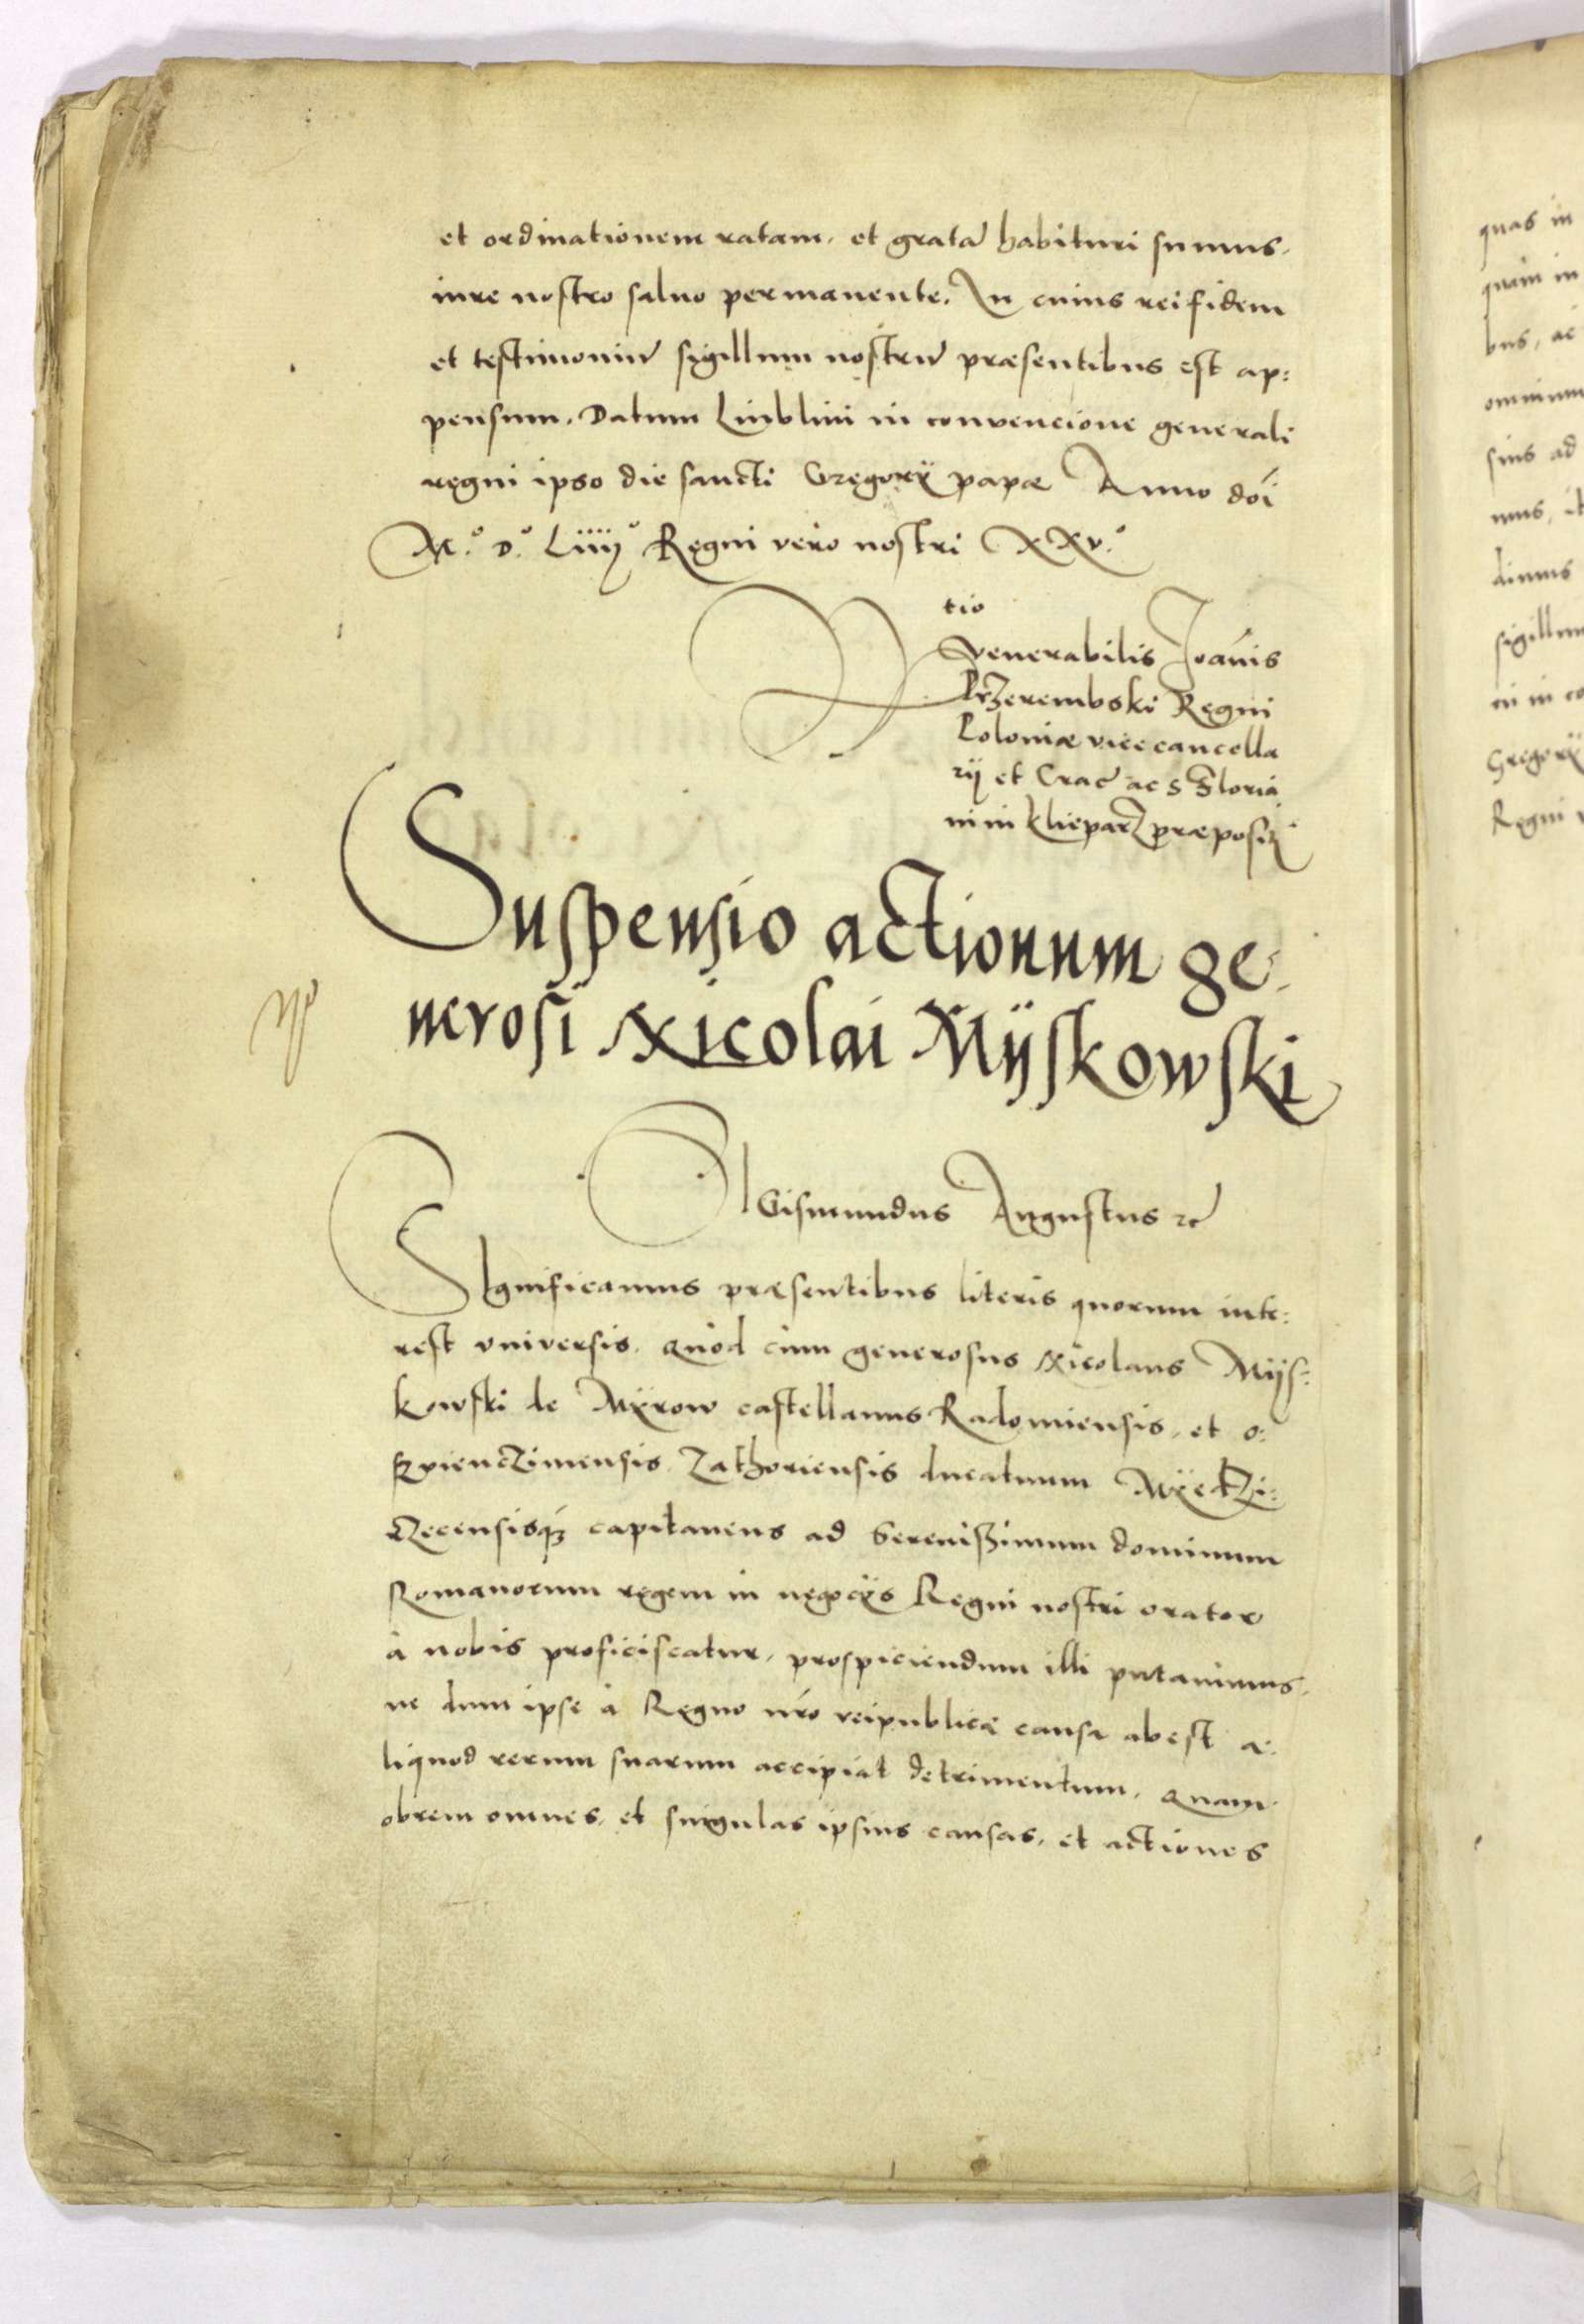 et ordinationem ratam, et gratā habituri sumus,
iure nostro salvo permanente. In cuius rei fidem
et testimoniū sigillum nostrū præsentibus est ap:
pensum. Datum Liublini in convencione generali
regni ipso die sancti Gregorÿ papæ Anno doī
M.° D.° Liiij° Regni vero nostri XXV.°
tio
Venerabilis Joānis
Przerembski Regni
Poloniæ vicecancella
rij et Crac̄ ac S Floria
ni in Klieparz præposit̄
Suspensio actionum ge:
nerosi Nicolai Mÿskowski
SIGismundus Augustus ꝛc̄
SIgnificamus præsentibus literis quorum inte:
rest universis. Quòd cùm generosus Nicolaus Mÿs:
kowski de Mÿrow castellanus Radomiensis, et o:
swienczimensis Zathoriensis ducatuum Mÿedzi:
rzecensisq́ꝫ capitaneus ad Serenißimum dominum
Romanorum regem in negocÿs Regni nostri orator
à nobis proficiscatur, prospiciendum illi putavimus,
ne dum ipse à Regno nr̄o reipublicæ causa abest a:
liquod rerum suarum accipiat detrimentum. Quam
obrem omnes, et singulas ipsius causas, et actiones
quas in
quàm in
bus, ac
omnium
sius ad
mus, it
dimus
sigillum
ni in co
Gregorÿ
Regni v